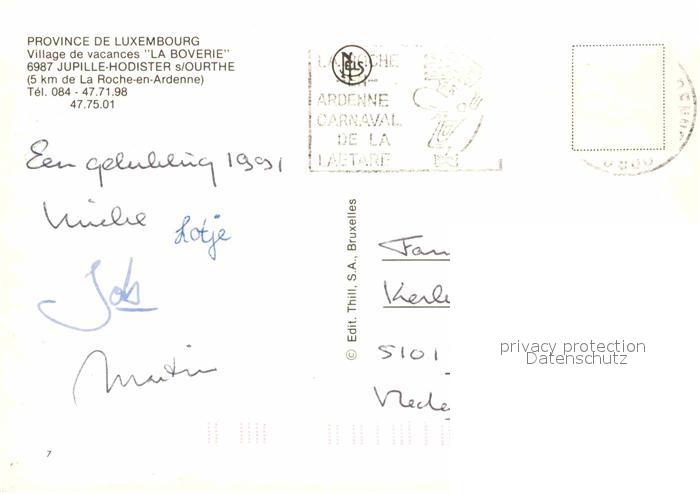 PROVINCE DE LUXEMBOURG
Village de vacances "LA BOVERIE"
6987 JUPILLE-HODISTER s/OURTHE
(5 km de La Roche-en-Ardenne)
Tél. 084 - 47.71.98
47.75.01
LA ROCHE
EN
ARDENNE
CARNAVAL
DE LA
LAETARE
NELS
Een gelukkig 1991
Lotje
Job
Martin
© Edit. Thill, S.A., Bruxelles
Fam
5101
privacy protection
Datenschutz
7